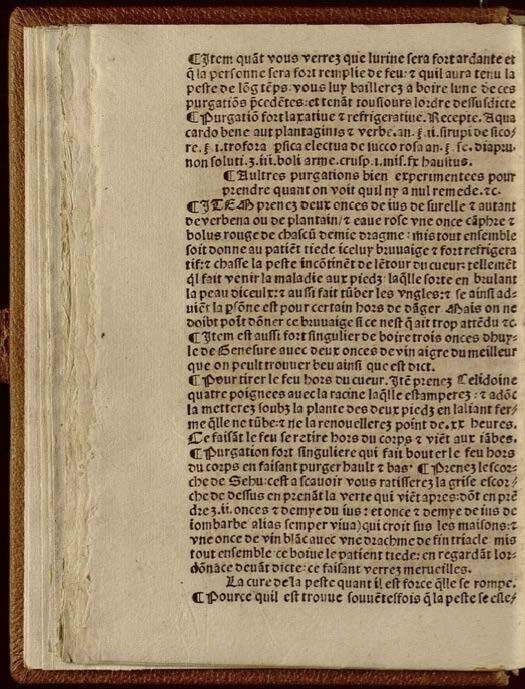 ¶Item quãt vous verrez que lurine sera fort ardante et
q̃ la personne sera fort remplie de feu: ⁊ quil aura tenu la
peste de lõg tẽps. vous luy baillerez a boire lune de ces
purgatiõs p̃cedẽtes: et tenãt tousiours lordre dessusdicte
¶Purgatiõ fort laxatiue ⁊ refrigeratiue. Recepte. Aqua
cardo bene aut plantaginis ⁊ verbe. an. ℥. ii. sirupi de sico/
re. ℥. i. trofora ꝑsica electua de succo rosa an. ℥. se. diapru.
non soluti. ʒ. iii. boli arme. crusp. i. mis. fx haustus.
¶Aultres purgations bien experimentees pour
prendre quant on voit quil ny a nul remede. ⁊c.
¶ITEM prenez deux onces de ius de surelle ⁊ autant
de verbena ou de plantain/ ⁊ eaue rose vne once cãphre ⁊
bolus rouge de chascũ demie dragme: mis tout ensemble
soit donne au patiẽt tiede iceluy bruuaige ⁊ fort refrigera
tif: ⁊ chasse la peste incõtinẽt de lẽtour du cueur: tellemẽt
q̃l fait venir la maladie aux piedz: laq̃lle sorte en brulant
la peau diceulx: ⁊ aussi fait tũber les vngles: ⁊ se ainsi ad/
uiẽt la ꝑsõne est pour certain hors de dãger Mais on ne
doibt poĩt dõner ce bruuaige si ce nest q̃ ait trop attẽdu ⁊c.
¶Item est aussi fort singulier de boire trois onces dhuy/
le de Genesure auec deux onces de vin aigre du meilleur
que on peult trouuer beu ainsi que est dict.
¶Pour tirer le feu hors du cueur. Itẽ prenez Celidoine
quatre poignees auec la racine laq̃lle estamperez: ⁊ adõc
la metterez soubz la plante des deux piedz en laliant fer/
me q̃lle ne tũbe: ⁊ ne la renouellerez point de. xx heures.
Ce faisãt le feu se retire hors du corps ⁊ viẽt aux iãbes.
¶Purgation fort singuliere qui fait bouter le feu hors
du corps en faisant purger hault ⁊ bas. ¶Prenez lescor/
che de Sehu: cest a scauoir vous ratisserez la grise escor/
che de dessus en prenãt la verte qui viẽt apres: dõt en prẽ
dre ʒ. ii. onces ⁊ demye du ius: et once ⁊ demye de ius de
iombarbe alias semper viua) qui croit sus les maisons: ⁊
vne once de vin blãc auec vne drachme de fin triacle mis
tout ensemble ce boiue le patient tiede: en regardãt lor/
dõnãce deuãt dicte: ce faisant verrez merueilles.
La cure de la peste quant il est force q̃lle se rompe.
¶Pource quil est trouue souuẽtesfois q̃ la peste se esle/